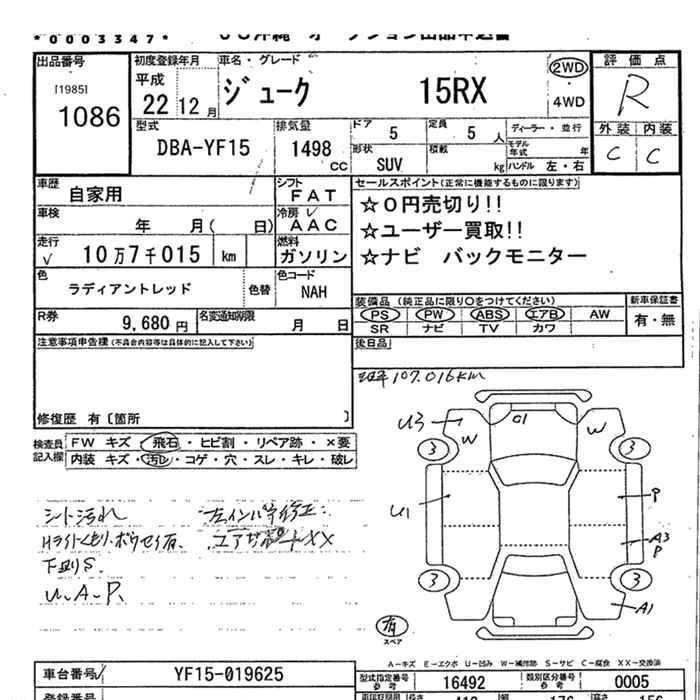 *0003347*
出品番号
[1985]
1086
初度登録年月
平成
22 12 月
車名・グレード
ジューク 15RX
2WD
・
4WD
評価点
R
外装 内装
C C
型式
DBA-YF15
排気量
1498
cc
ドア 5
定員 5 人
形状 SUV
積載 kg
ディーラー・並行
モデル年式 年
ハンドル 左・右
車歴
自家用
シフト
FAT
車検
年 月( 日)
冷房 ✓
AAC
走行
✓ 10万7千015 km
燃料
ガソリン
色
ラディアントレッド
色替
色コード
NAH
R券
9,680 円
名変通知期限
月 日
セールスポイント(正常に機能するものに限ります)
☆0円売切り!!
☆ユーザー買取!!
☆ナビ バックモニター
装備品 (純正品に限り○をつけてください)
PS PW ABS エアB AW
SR ナビ TV カワ
新車保証書
有・無
後日品
注意事項申告欄(不具合内容等は具体的に記入して下さい)
修復歴 有〔箇所 〕
検査員記入欄
FW キズ・飛石・ヒビ割・リペア跡・×要
内装 キズ・汚レ・コゲ・穴・スレ・キレ・破レ
シート汚れ
Hライトくもり
下廻りS.
U.A.P.
107.016KM
U3
W
G1
W
3
3
U1
P
A3
P
3
3
A1
有
スペア
A=キズ E=エクボ U=凹み W=補修跡 S=サビ C=腐食 XX=交換済
車台番号
YF15-019625
型式指定番号
参考
16492
類別区分番号
参考
0005
登録番号